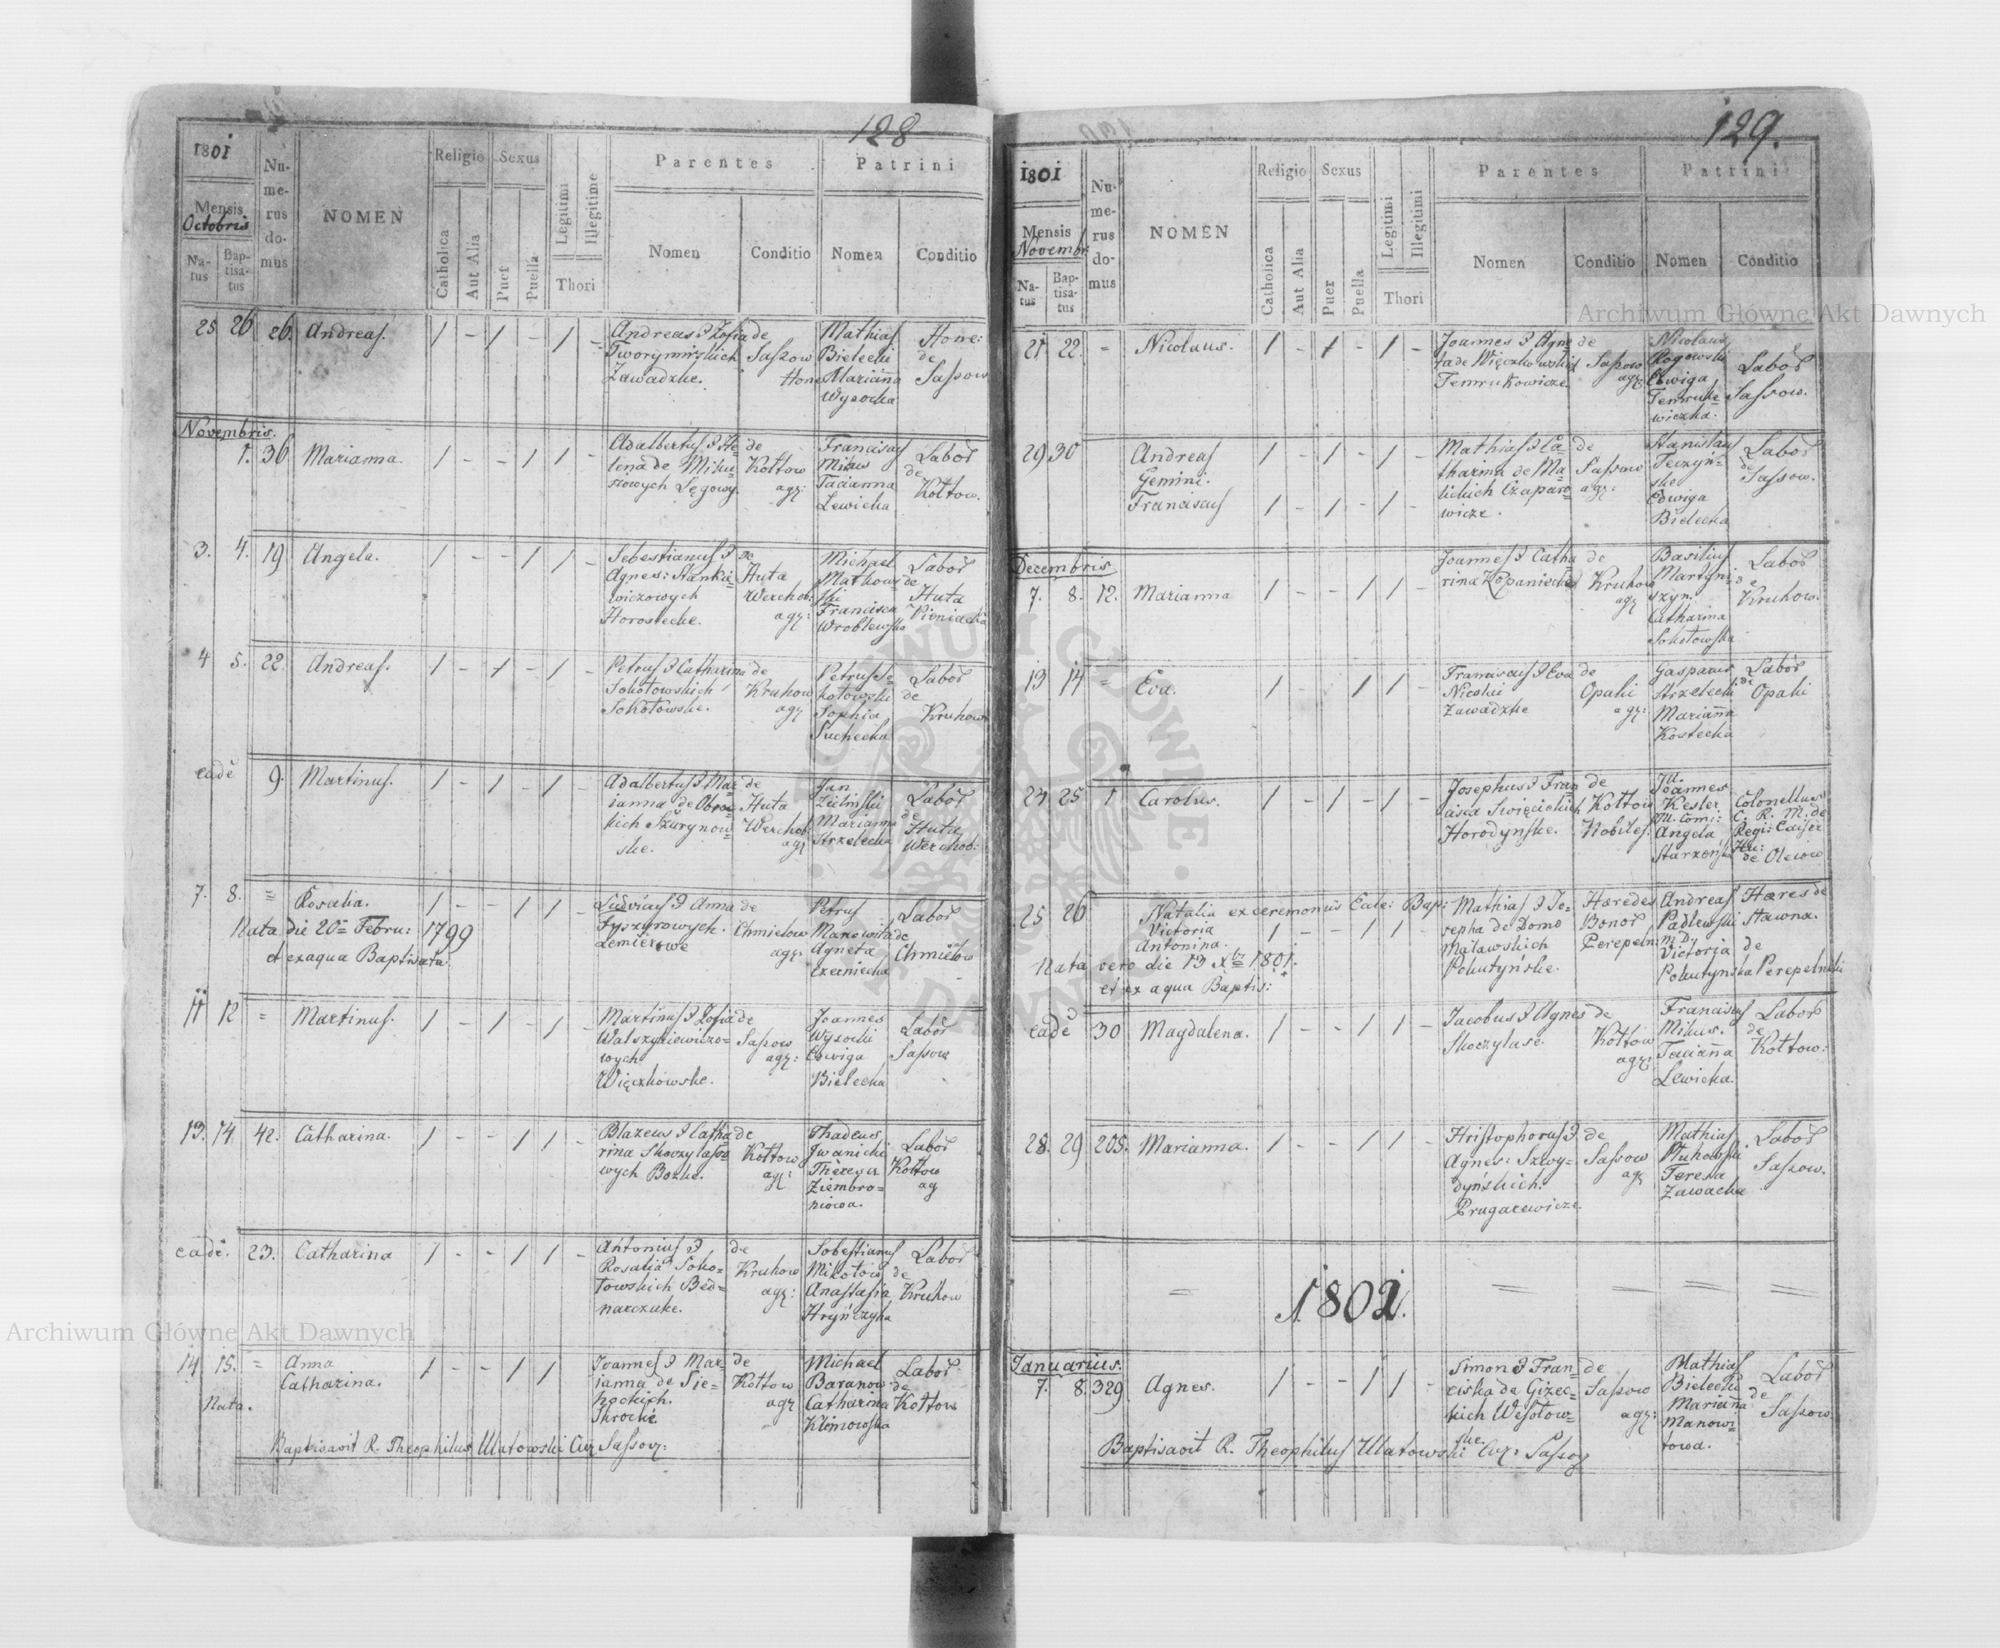 128
1801
Mensis
Octobris
Na-
tus
Bap-
tisa-
tus
Nu-
me-
rus
do-
mus
NOMEN
Religio
Catholica
Aut Alia
Sexus
Puer
Puella
Legitimi
Illegitime
Thori
Parentes
Nomen
Conditio
Patrini
Nomen
Conditio
25 26 26. Andreas. / - / - / -
Andreas & Zofia
Tworymirskich
Zawadzke.
de
Sassow
Hone
Mathias
Bielecki
Marianna
Wysocka
Hone:
de
Sassow
Novembris.
1. 36 Marianna. / - - / / -
Adalbertus & He-
lena de Miku-
szowych Lęgowy.
de
Kołtow
agr:
Franciscus
Mikus
Tacianna
Lewicka
Labor
de
Kołtow.
3. 4. 19 Angela. / - - / / -
Sebestianus &
Agnes: Stanki-
wiczowych
Horostecke.
de
Huta
Werchob:
agr:
Michael
Mathows-
ski
Francisca
Wroblewska
Labor
de
Huta
Pieniacka
4 5. 22. Andreas. / - / - / -
Petrus & Catharina
Sokołowskich
Sokołowske.
de
Kruhow
agr
Petrus So-
kołowski
Sophia
Suchecka
Labor
de
Kruhow
eadē 9. Martinus. / - / - / -
Adalbertus & Mar-
ianna de Obro-
kich Szurynow-
ske.
de
Huta
Werchob:
agr
Jan
Zielinski
Marianna
Strzelecka
Labor
de
Huta
Werchob:
7. 8. = Rosalia. / - - / / -
Nata die 20ma Febru: 1799
et ex aqua Baptisata.
Ludvicus & Anna
Fyszyrowych.
Lemierowe
de
Chmielow
agr:
Petrus
Manowita
Agneta
Czerniecka
Labor
de
Chmielow
11 12 = Martinus. / - / - / -
Martinus & Zofia
Walszykiewiczo-
wych
Więczkowske.
de
Sassow
agr:
Joannes
Wysocki
Edwiga
Bielecka
Labor
Sassow
13. 14. 42. Catharina. / - - / / -
Blazeus & Catha
rina Skoczylaso-
wych Bozke.
de
Kołtow
agr:
Thadeus
Iwanicki
Theresia
Ziembro-
niowa.
Labor
Kołtow
ag
eadē. 23. Catharina / - - / / -
Antonius &
Rosalia Soko-
łowskich Bed-
narczuke.
de
Kruhow
agr:
Sobestianus
Mikołow
Anastasia
Hryńczyha
Labor
de
Kruhow
14 15. = Anna
Catharina. / - - / / -
Nata.
Joannes & Mar-
ianna de Sie-
hockich.
Skrocke
de
Kołtow
agr
Michael
Baranow-
Catharina
Klimowska
Labor
de
Kołtow
Baptisavit R. Theophilus Ulatowski Cur Sassov:
129.
1801
Mensis
Novembr
Na-
tus
Bap-
tisa-
tus
Nu-
me-
rus
do-
mus
NOMEN
Religio
Catholica
Aut Alia
Sexus
Puer
Puella
Legitimi
Illegitimi
Thori
Parentes
Nomen
Conditio
Patrini
Nomen
Conditio
21 22. = Nicolaus. / - / - / -
Joannes & Agne
ta de Więczkowskich
Temrukowicze.
de
Sassow
agr:
Nicolaus
Rogowski
Edwiga
Temruko-
wiczka.
Labor
Sassow.
29 30 Andreas / - / - / -
Gemini.
Franciscus / - / - / -
Mathias & Ca-
tharina de Ma-
lickich Czaparo-
wicze.
de
Sassow
agr:
Stanislaus
Teczyń-
ske
Edwiga
Bielecka
Labor
de
Sassow.
Decembris
7. 8. 12. Marianna / - - / / -
Joannes & Catha
rina Kopanieckie
de
Kruhow
agr
Basilius
Martyni-
szyn.
Catharina
Sokołowska
Labor
de
Kruhow.
13 14 = Eva. / - - / / -
Franciscus & Eva
Nicolai
Zawadzke
de
Opaki
agr:
Gasparus
Strzelecki
Marianna
Kostecka
Labor
de
Opaki
24 25 1 Carolus. / - / - / -
Josephus & Fran
cisca Swięcickich
Horodynske.
de
Kołtow
Nobiles.
Ill.
Joannes
Kesler
Ill. Comi:
Angela
Starzeńska
Colonellus
C. R. M. de
Regi: Caiser
Hæ:
de Olejow
25 26 Natalia ex ceremoniis Eccle: Bap:
Victoria / - - / / -
Antonina.
Nata vero die 13 Xbris 1801.
et ex aqua Baptis:
Mathias & Jo-
sepha de Domo
Malawskich
Pokutyńske.
Hæredes
Bonor
Perepeln:
Andreas
Padlewski
M. D.
Victoria
Pokutynska
Hæres de
Stawna.
de
Perepelniki
eadē 30 Magdalena. / - - / / -
Jacobus & Agnes
Skoczylase.
de
Kołtow
agr:
Franciscus
Mikus.
Tacianna
Lewicka.
Labor
de
Kołtow:
28 29 205. Marianna. / - - / / -
Hristophorus &
Agnes: Szwy-
dyńskich.
Prugarewicze.
de
Sassow
agr
Mathias
Ptuhowski
Teresa
Zawacka
Labor
Sassow.
1802.
Januarius.
7. 8. 329. Agnes. / - - / / -
Simon & Fran-
ciska de Gizec-
kich Wesołow-
ske.
de
Sassow
agr:
Mathias
Bielecki
Marianna
Manowi-
towa.
Labor
de
Sassow
Baptisavit R. Theophilus Ulatowski Cur: Sassov
Archiwum Główne Akt Dawnych
Archiwum Główne Akt Dawnych